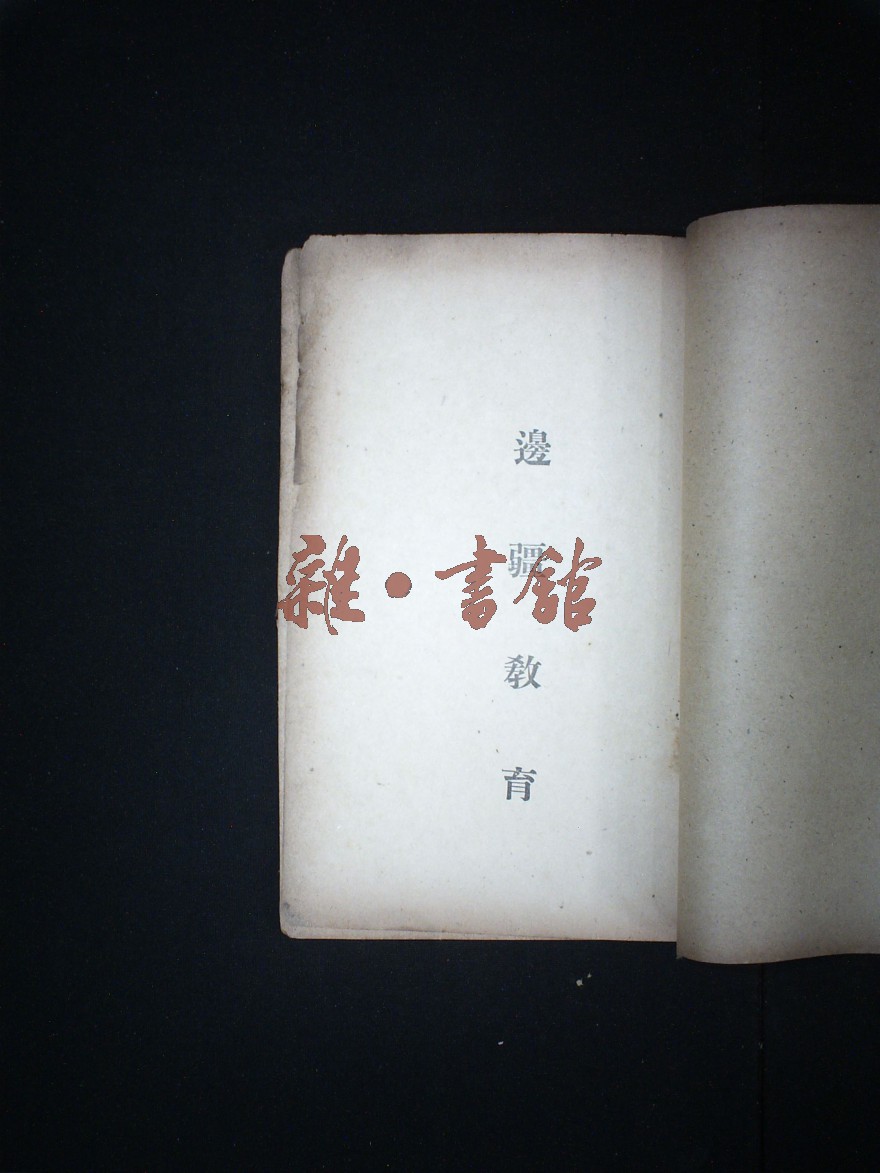 邊疆教育
雜·書館